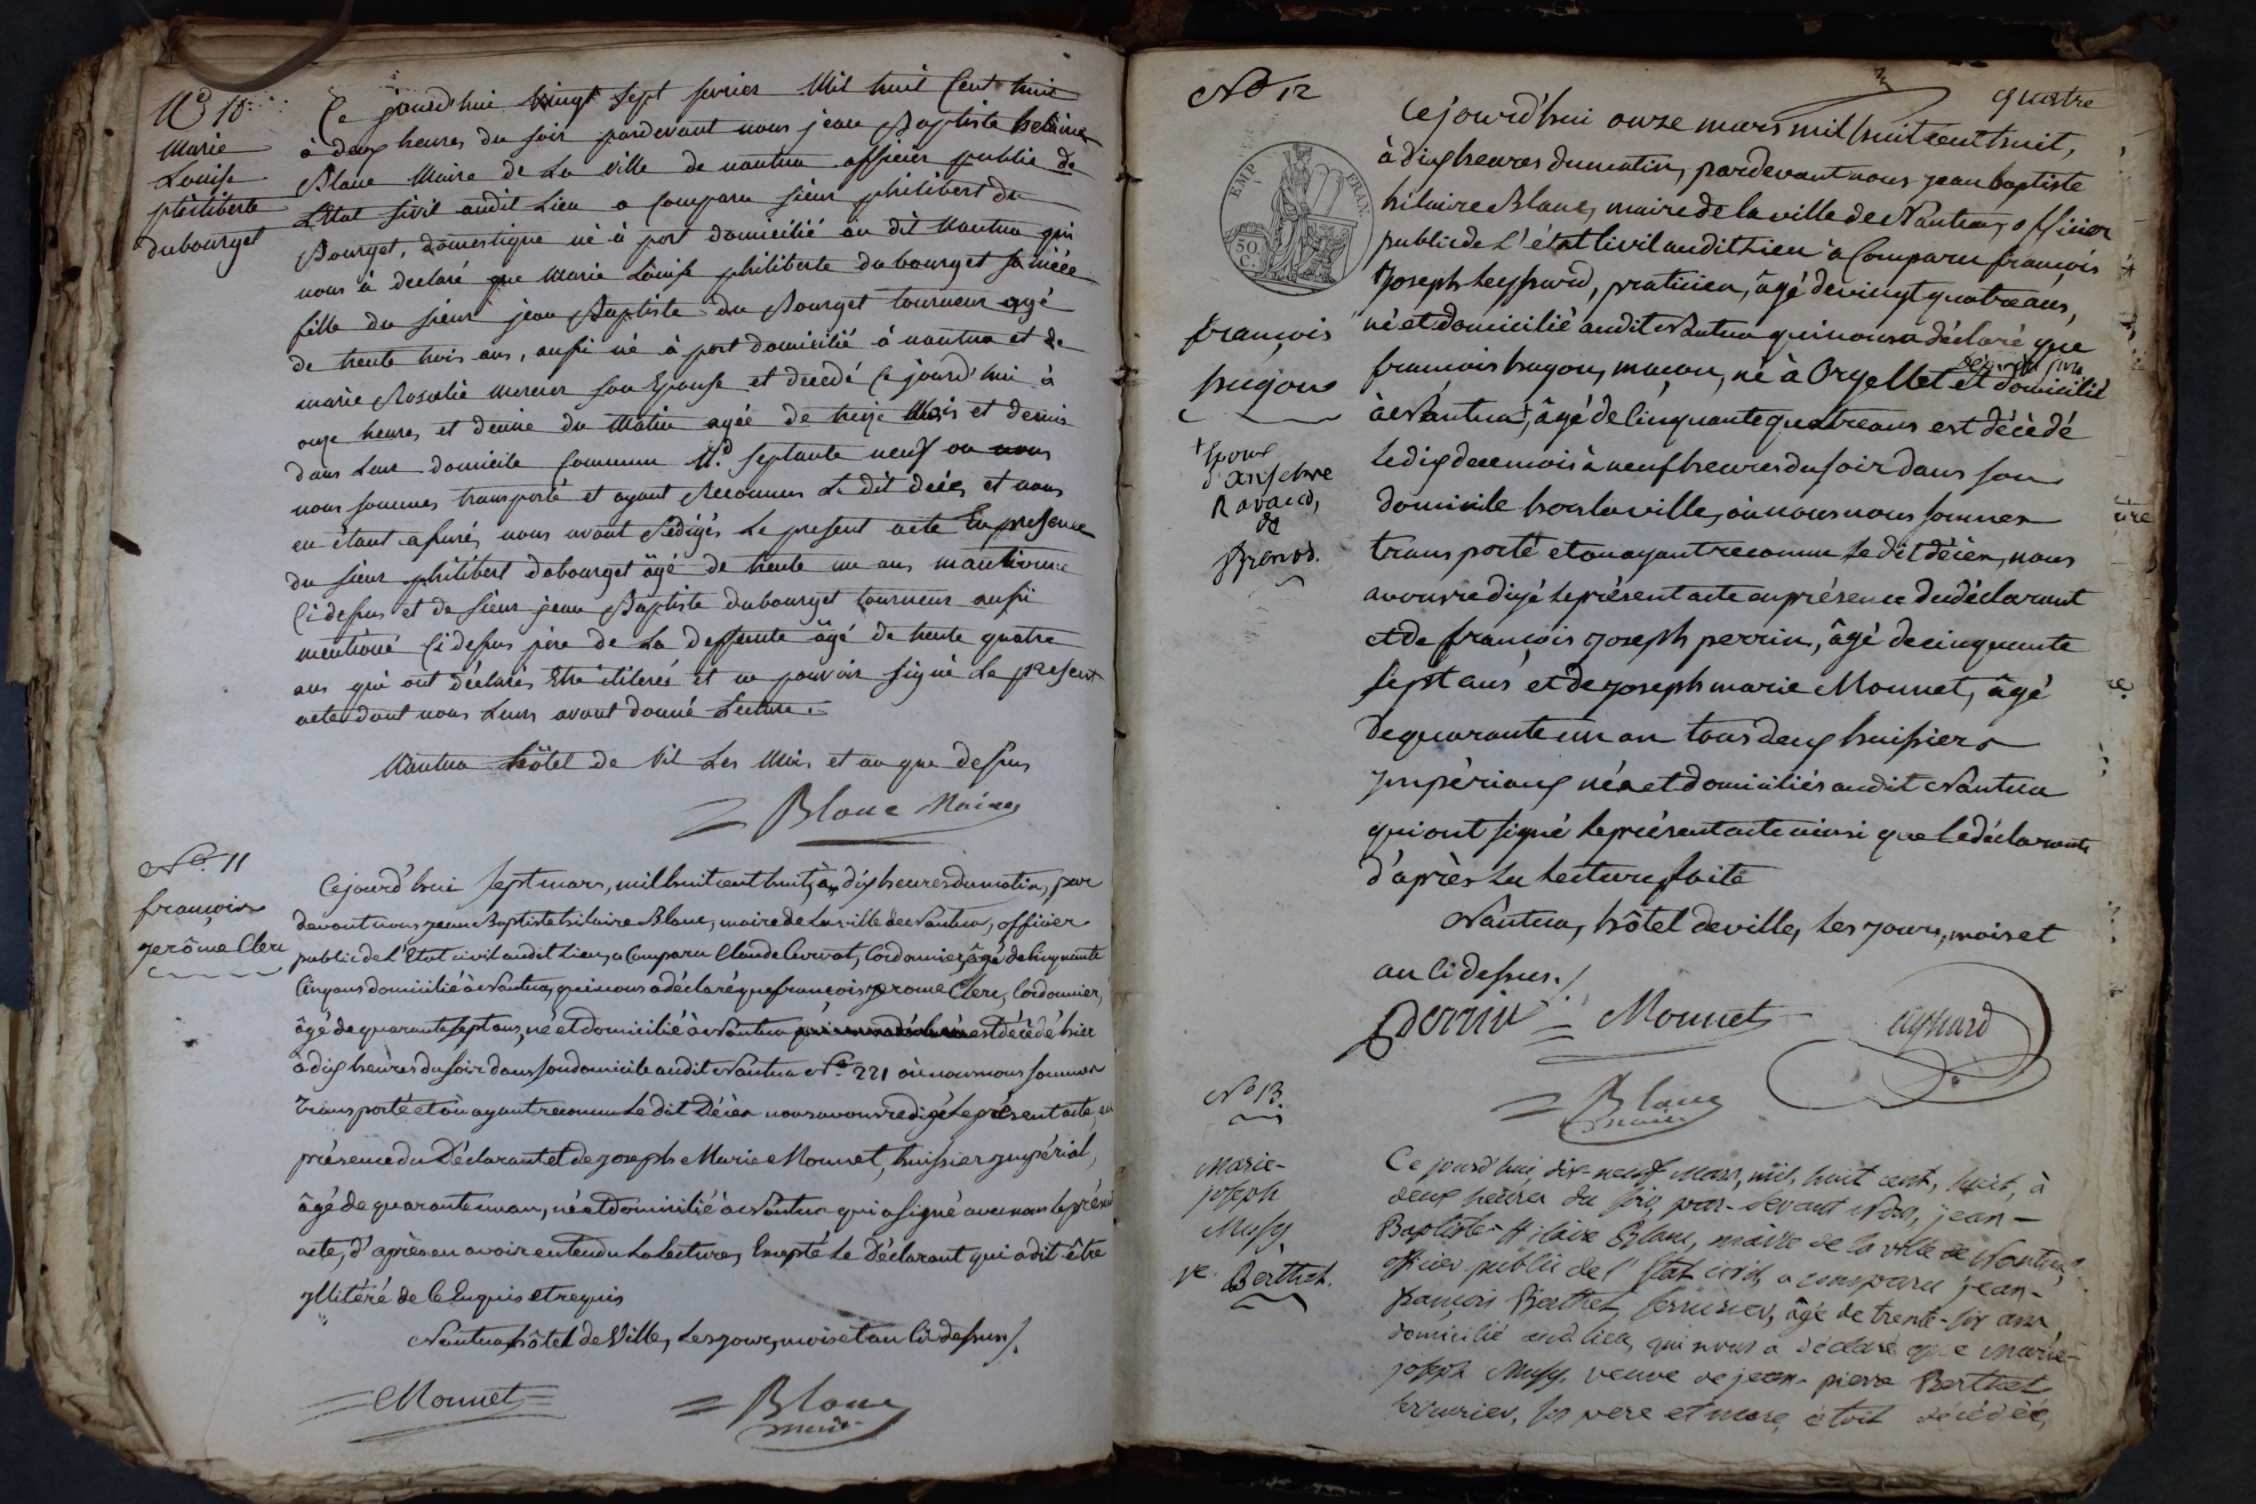 No 10.
Marie
Louise
philiberte
dubourget
Ce jourd'hui vingt sept fevrier Mil huit Cent huit
à deux heures du soir pardevant nous jean Baptiste helaire
Blanc Maire de La ville de nantua officier public de
L'Etat sivil audit Lieu a Comparu sieur philibert du
Bourget, domestique né à port domicilié au dit Nantua qui
nous à declaré que Marie Louise philiberte dubourget sa niéce
fille du sieur jean Baptiste du Bourget tourneur agé
de trente trois ans, aussi né à port domicilié à nantua et de
marie Rosalie mercier son Epouse et decedé Ce jourd'hui à
onze heures et demie du Matin agée de treize Mois et demis
dans Leur domicile Commun N.º septante neuf ou nous
nous sommes transporté et ayant Reconnus Le dit décés et nous
en étant assuré, nous avont Rédigés Le present acte En presence
du sieur philibert dubourget âgé de trente un ans mantionné
Ci dessus et de sieur jean Baptiste dubourget tourneur aussi
mentioné Ci dessus père de La deffunte âgé de trente quatre
ans qui ont déclarés Etre iliterés et ne pouvoir signé Le present
acte dont nous Leurs avont donné Lecture.
Nantua hôtel de Vil Les Mois et an que dessus
Blanc Maire
No. 11
françois
jerôme Clerc
Cejourd'hui sept mars, mil huit cent huit, à dix heures du matin, par
devant nous jean Baptiste hilaire Blanc, maire de la ville de Nantua, officier
public de l'Etat civil audit Lieu, a Comparu Claude , Cordonnier, âgé de Cinquante
Cinq ans domicilié à Nantua, qui nous a déclaré que françois jerome Clerc, Cordonnier,
âgé de quarante sept ans, né et domicilié à Nantua est décédé hier
à dix heures du soir dans son domicile audit Nantua No. 221 où nous nous sommes
transporté et où ayant reconnu Le dit Décès nous avons redigé Le présent acte, en
présence du Déclarant et de joseph Marie Monnet, huissier jmpérial,
âgé de quarante un an, né et domicilié à Nantua qui a signé avec nous le présent
acte, d'après en avoir entendu La Lecture, Excepté Le Déclarant qui a dit être
yllitéré de Ce Enquis et requis
Nantua, hôtel de Ville, Les jour, mois et an Ci dessus ./.
Monnet
Blanc
maire
No 12
quatre
EMP. FRAN.
50
C.
françois
hugon
+ Epoux
d'anselme
Ravaud,
de
Brenod.
Cejourd'hui onze mars mil huit cent huit,
à dix heures du matin, pardevant nous jean baptiste
hilaire Blanc, maire de la ville de Nantua, officier
public de L'état Civil audit Lieu a Comparu françois
joseph Leyssard, praticien, âgé de vingt quatre ans,
né et domicilié audit Nantua qui nous a déclaré que
françois hugon, maçon, né à Orgellet et domicilié
à Nantua +, âgé de Cinquante quatre ans est décédé
Le dix de ce mois à neuf heures du soir dans son
domicile hors la ville, où nous nous sommes
transporté et où ayant reconnu Le dit décès, nous
avons redigé Le présent acte en présence du déclarant
et de françois joseph perrin, âgé de cinquante
sept ans et de joseph marie Monnet, âgé
de quarante un an tous deux huissiers
jmpériaux nés et domiciliés audit Nantua
qui ont signé Le présent acte ainsi que Le déclarant
d'après La Lecture faite
Nantua, hôtel de ville, Les jour, mois et
an Ci dessus ./.
Perrin Monnet Leyssard
Blanc
maire
No 13.
Marie-
joseph
Mussy
ve. Berthet.
Ce jourd'hui, dix-neuf mars, mil, huit cent, huit, à
deux heures du soir, par-devant Nous, jean-
Baptiste-Hilaire Blanc, maire de la ville de Nantua,
officier public de l'état civil, a comparu jean-
françois Berthet, serrurier, âgé de trente-six ans,
domicilié audit lieu, qui nous a déclaré que marie-
joseph Mussy, veuve de jean-pierre Berthet
serrurier, ses pere et mere, étoit décédée,